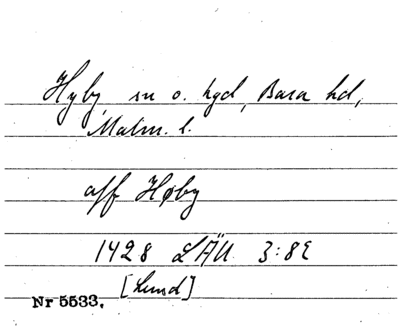 Hyby, sn o. hgd, Bara hd,
Malm. l.
aff Høby
1428 LÄU 3:82
[Lund]
Nr 5533.